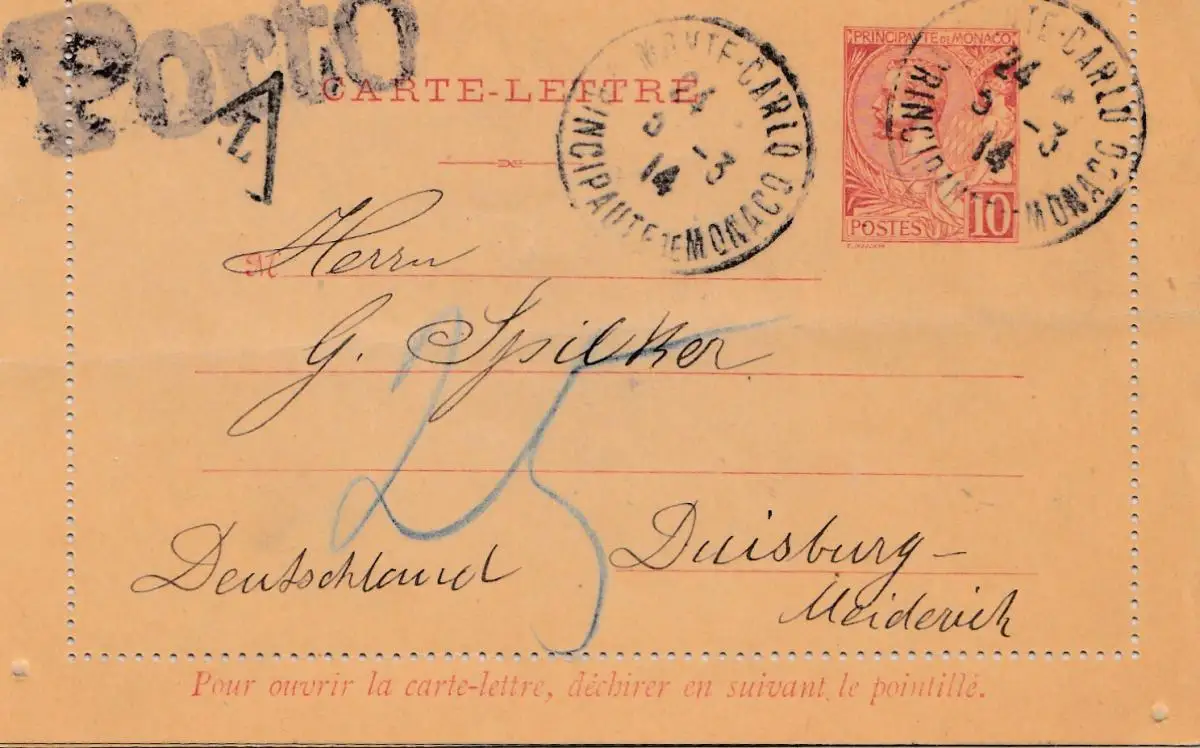 Porto
T
CARTE-LETTRE
MONTE-CARLO
24
5 -3
14
PRINCIPAUTE DE MONACO
PRINCIPAUTE DE MONACO
10
POSTES
MONTE-CARLO
24
5 -3
14
PRINCIPAUTE DE MONACO
M
Herrn
G. Spilker
25
Deutschland Duisburg-
Meiderich
Pour ouvrir la carte-lettre, déchirer en suivant le pointillé.